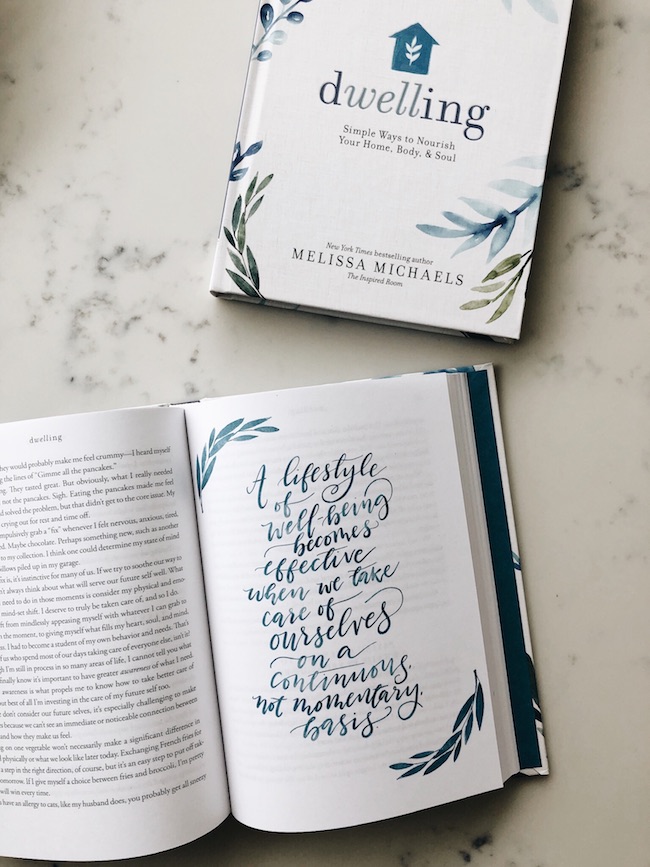 dwelling
Simple Ways to Nourish
Your Home, Body, & Soul
New York Times bestselling author
MELISSA MICHAELS
The Inspired Room
dwelling
they would probably make me feel crummy—I heard myself
the lines of “Gimme all the pancakes.”
They tasted great. But obviously, what I really needed
not the pancakes. Sigh. Eating the pancakes made me feel
solved the problem, but that didn’t get to the core issue. My
crying out for rest and time off.
grab a “fix” whenever I felt nervous, anxious, tired,
Maybe chocolate. Perhaps something new, such as another
to my collection. I think one could determine my state of mind
piled up in my garage.
fix is, it’s instinctive for many of us. If we try to soothe our way to
always think about what will serve our future self well. What
need to do in those moments is consider my physical and emo-
mind-set shift. I deserve to truly be taken care of, and so I do.
from mindlessly appeasing myself with whatever I can grab to
the moment, to giving myself what fills my heart, soul, and mind.
I had to become a student of my own behavior and needs. That’s
us who spend most of our days taking care of everyone else, isn’t it?
I’m still in process in so many areas of life, I cannot tell you what
finally know it’s important to have greater awareness of what I need.
awareness is what propels me to know how to take better care of
best of all I’m investing in the care of my future self too.
don’t consider our future selves, it’s especially challenging to make
because we can’t see an immediate or noticeable connection between
and how they make us feel.
on one vegetable won’t necessarily make a significant difference in
physically or what we look like later today. Exchanging French fries for
a step in the right direction, of course, but it’s an easy step to put off tak-
tomorrow. If I give myself a choice between fries and broccoli, I’m pretty
will win every time.
have an allergy to cats, like my husband does, you probably get all sneezy
A lifestyle
of
well-being
becomes
effective
when we take
care of
ourselves
on a
continuous,
not momentary,
basis.